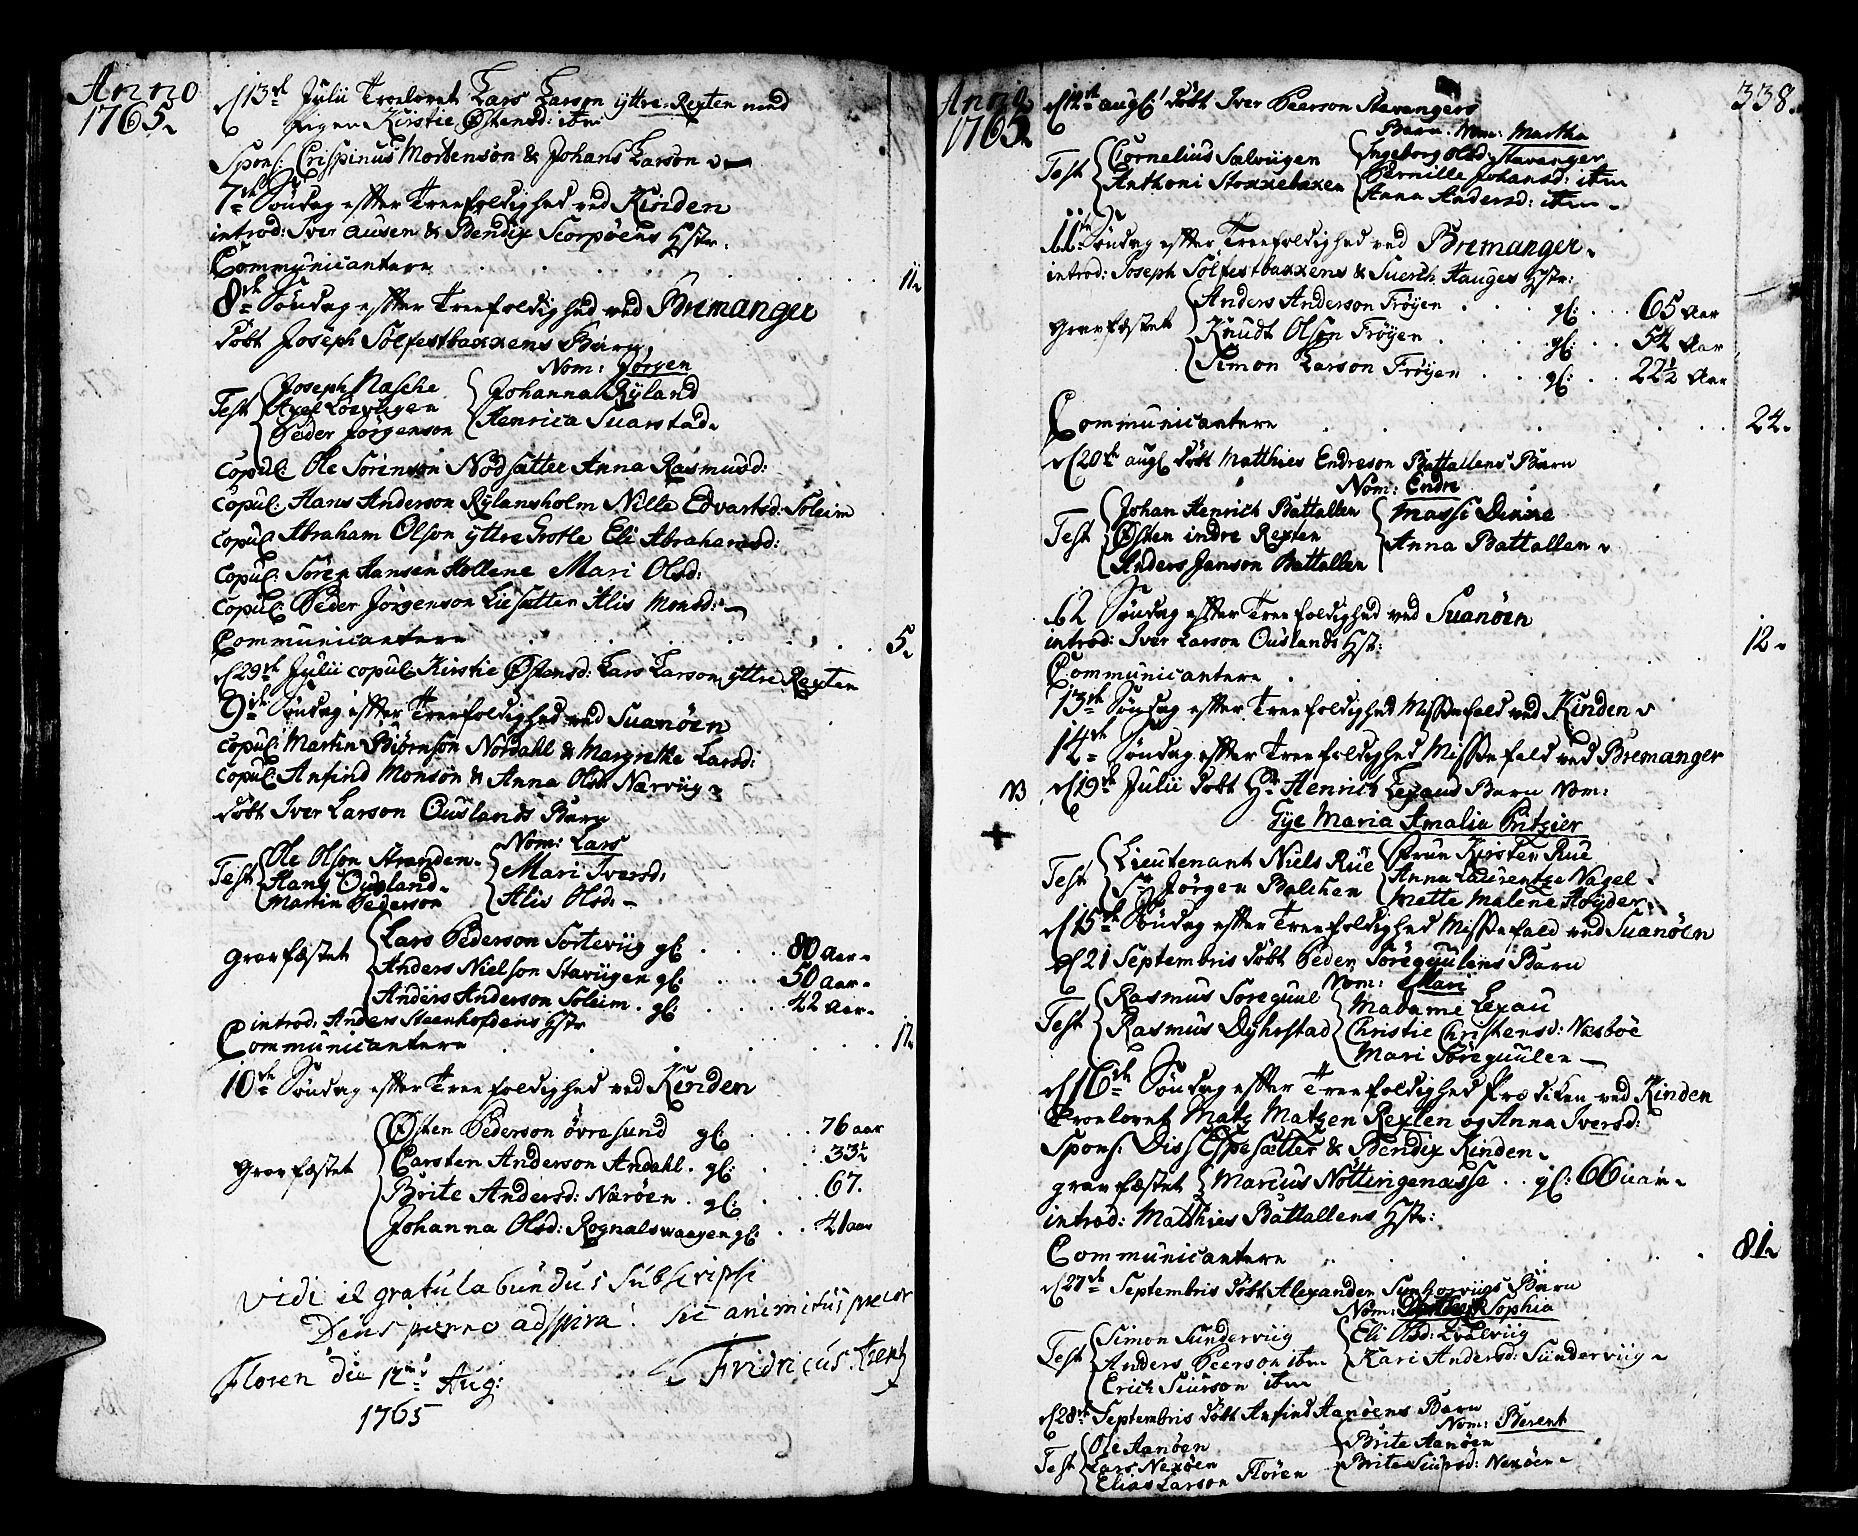 Anno
1765.
d 13de Julii Troelovet Lars Larson yttre Rexten med
Pigen Kirstie Østensd: ibm
Spons: Crispinus Mortenson & Johans Larson
7de Søndag effter Treefoldighed ved Kinden
introd: Iver Ausen & Bendix Scorpøens Hstr.
Communicantere . . . . . 11.
8de Søndag effter Treefoldighed ved Bremanger
Døbt Joseph Solfestbaxxens Barn
Nom: Jørgen
Test Joseph Nasche
Axel Løevigen
Peder Jørgenson
Johanna Ryland
Henrica Suarstad.
Copul: Ole Sørenson Nødsætter Anna Rasmusd:
Copul: Hans Anderson Rylansholm Nille Edvartsd: Soleim
Copul: Abraham Olson yttre Grotle Eli Abrahamsd:
Copul: Søren Hansen Hollene Mari Olsd:
Copul: Peder Jørgenson Liesætter Alis Monsd:
Communicantere . . . . . 5.
d 29de Julii copul: Kirstie Østensd: Lars Larson yttre Rexten
9de Søndag effter Treefoldighed ved Suanøen
Copul: Martin Biørnson Nordahl & Margrethe Larsd:
Copul: Anfind Monson & Anna Olsd: Nærviig
Døbt Iver Larson Ouslands Barn
Nom: Lars
Test Ole Olson Stranden.
Hans Ousland.
Martin Pederson
Mari Iversd:
Alis Olsd:
Gravfæstet Lars Pederson Sorteviig gl: . . 80 Aar.
Anders Nielson Staviigen gl: . . 50 Aar.
Anders Anderson Soleim . gl: . . 42 Aar.
introd: Anders Steenhofdens Hstr
Communicantere . . . . . 17.
10de Søndag effter Treefoldighed ved Kinden
Gravfæstet Østen Pederson øvresund gl: . . 76 aar
Carsten Anderson Andahl . gl: . . 33½
Brite Andersd: Nærøen . gl: . . 67.
Johanna Olsd: Rognalswaagen gl: . . 41 aar
Vidi et gratulabundus subscripsi
Deus porro adspira! sic animitus precor
Floren die 12mo Aug:
1765
Fridricus Arentz
Anno
1765.
338.
d 12te aug: Døbt Iver Pearson Stavangers
Barn. Nom: Martha
Test Cornelius Sælviigen
Anthoni Stoxxebaxen
Ingeborg Olsd: Stavanger
Pernille Johansd: ibm
Anna Andersd: ibm
11te Søndag effter Treefoldighed ved Bremanger.
introd: Joseph Solfestbaxxens & Suerch Hauges Hstr:
Gravfæstet Anders Anderson Frøyen . . gl: . . 65 Aar
Knudt Olson Frøyen . . gl: . . 54 Aar
Simon Larson Frøyen . . gl: . . 22½ Aar
Communicantere . . . . . 24.
d 20de aug: Døbt Matthies Endreson Battallens Barn
Nom: Endre
Test Johan Henrich Battallen
Østen indre Rexten
Anders Janson Battallen
Massi Dinne
Anna Battallen
12 Søndag effter Treefoldighed ved Suanøen
introd: Iver Larson Ouslands Hstr:
Communicantere . . . . . 12.
13de Søndag effter Treefoldighed Missefald ved Kinden
14de Søndag effter Treefoldighed Missefald ved Bremanger
NB d 19de Julii Døbt Hr. Henrich Lexaus Barn Nom:
Gye Maria Amalia Pritzier
Test Lieutenant Niels Rüe
Sr. Jørgen Balchen
Frue Kirsten Rüe
Anna Laurentze Nagel
Mette Malene Høyder
d 15de Søndag effter Treefoldighed Missefald ved Suanøen
d 21 Septembris Døbt Peder Søreguulens Barn
Nom: Mari
Test Rasmus Soreguul
Rasmus Dyhrstad
Madame Lexau
Christie Christensd: Næsbøe
Mari Søreguulen
d 16de Søndag effter Treefoldighed Prædiken ved Kinden
Troelovet Matz Matzen Rexten og Anna Iversd:
Spons: Diss Espesætter & Bendix Kinden.
gravfæstet Marcus Nottingenæsse . . gl: 66 aar.
introd: Matthies Battallens Hstr:
Communicantere . . . . . 81.
d 27de Septembris Døbt Alexander Sunhorviigs Barn
Nom: Sophia
Test Simon Sunderviig
Anders Peerson ibm
Erich Siurson ibm
Eli Olsd: Løelviig
Kari Andersd: Sünderviig
d 28de Septembris Døbt Anfind Aanøens Barn
Nom: Berent
Test Ole Aanøen
Lars Nexøen
Elias Larson Floren
Brite Aanøen
Brite Siursd: Nexøen